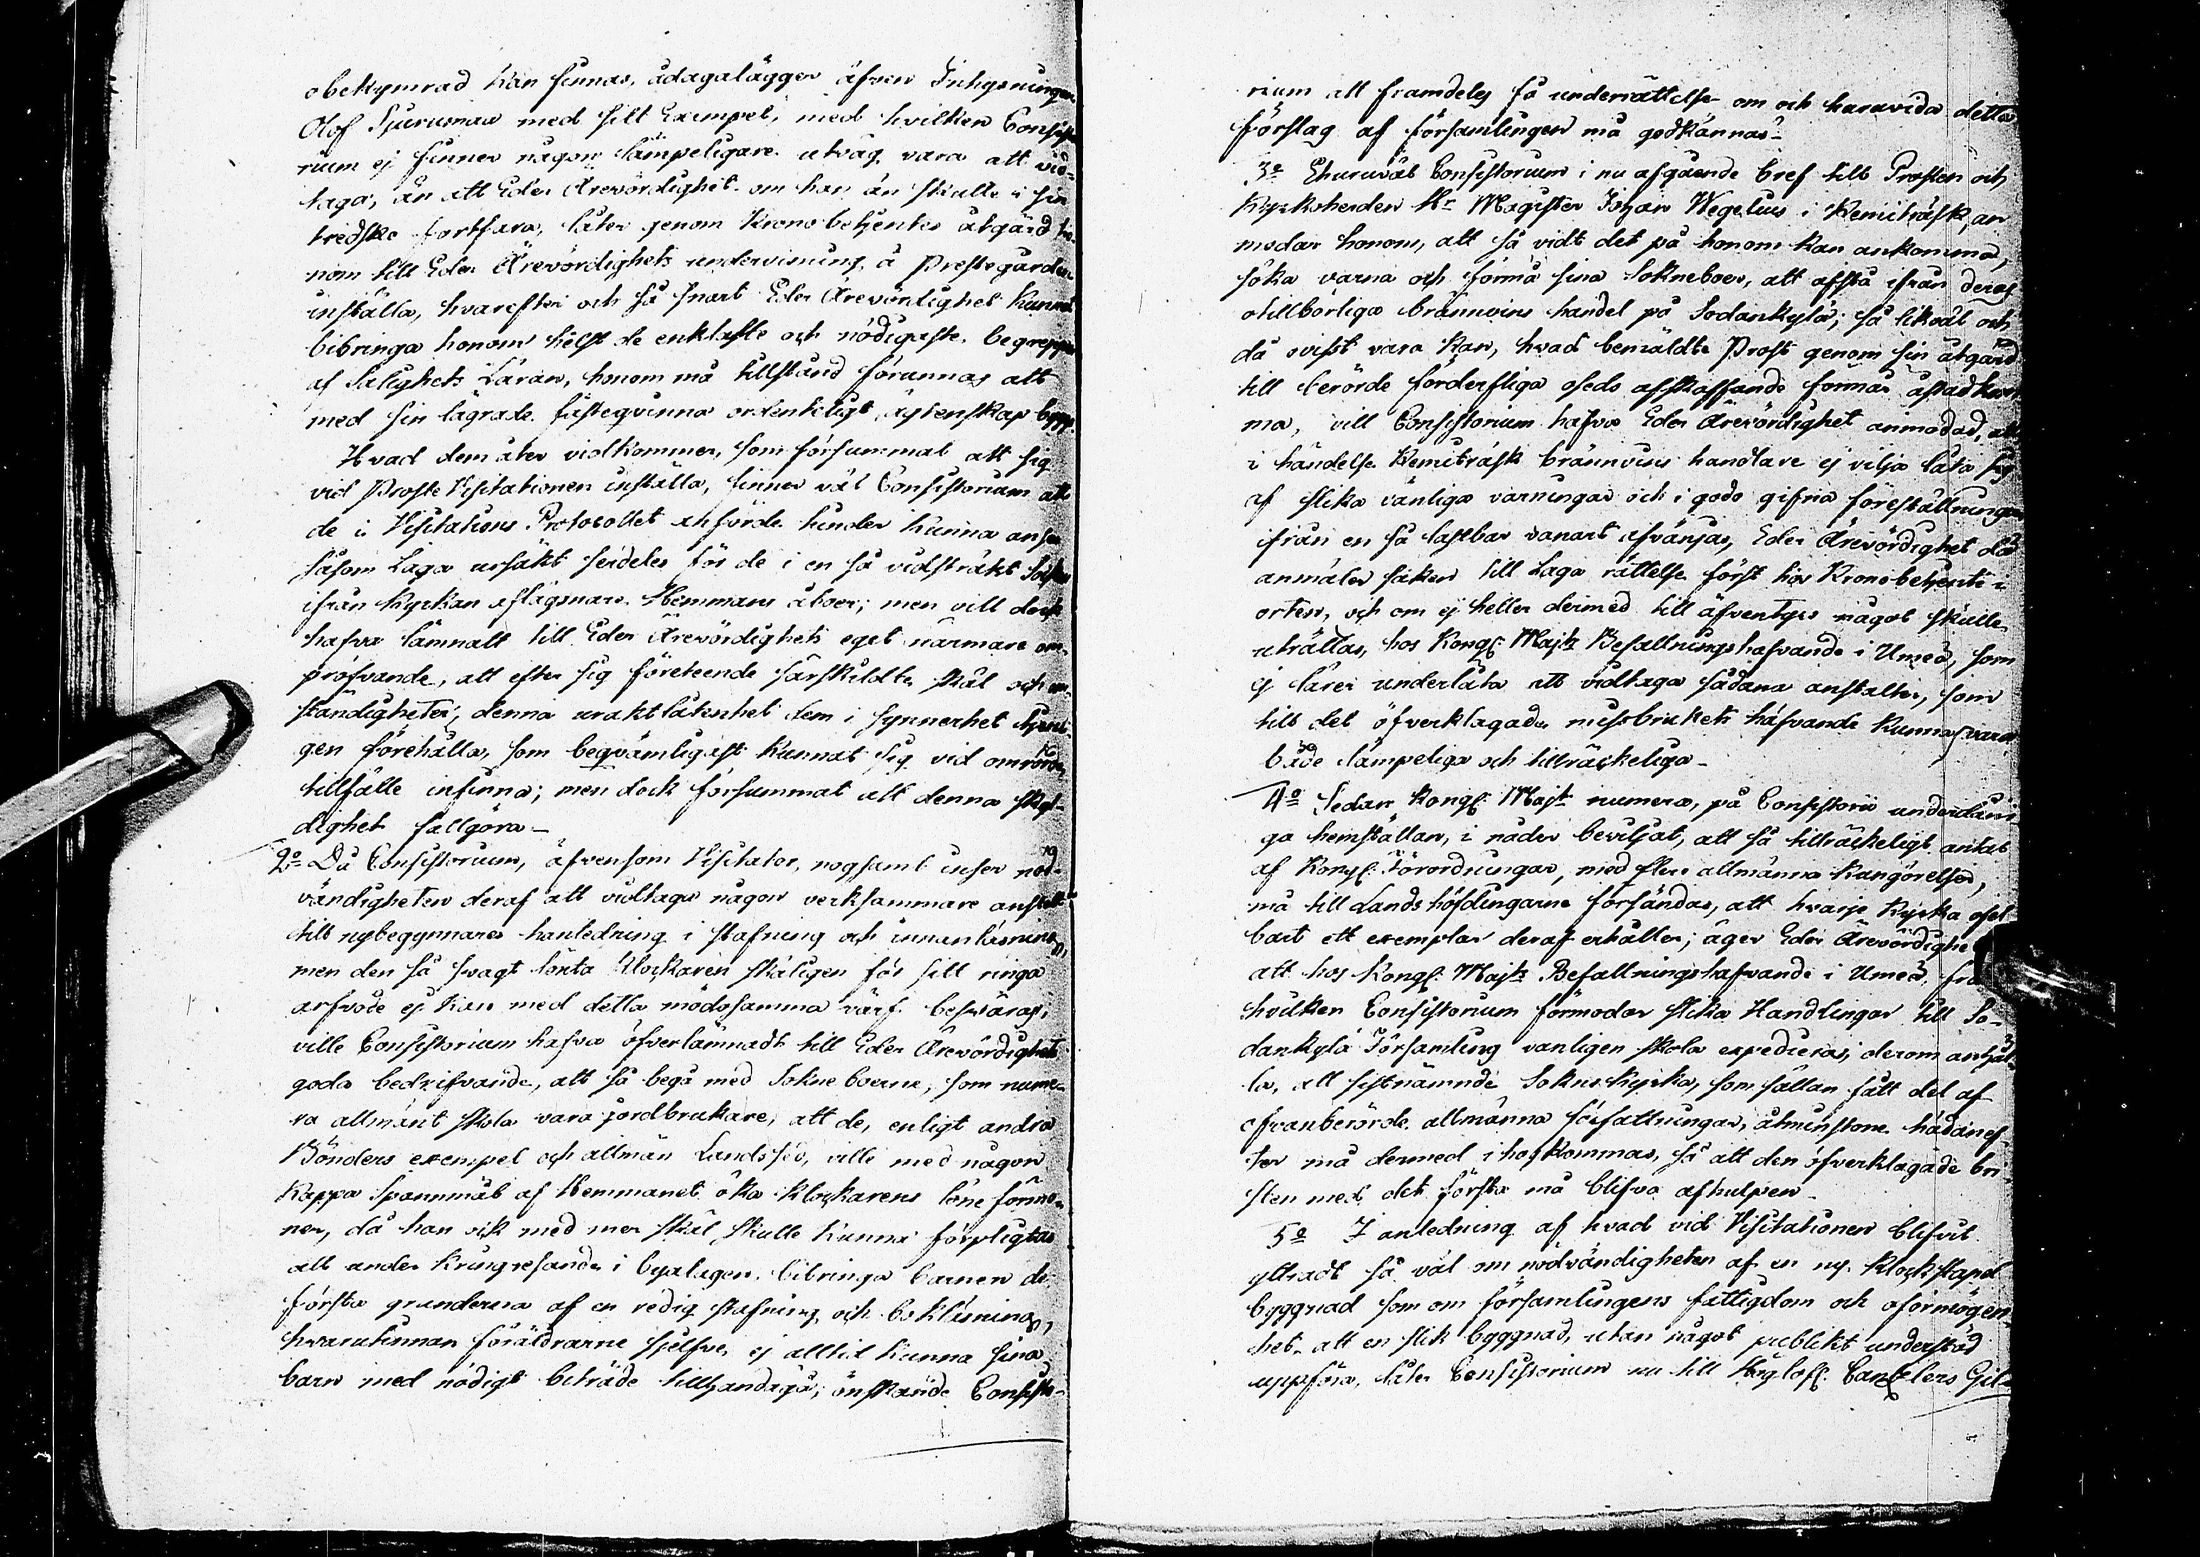 obekymrad kan finnas, ådagalägger äfven Inhysningen
Olof Sjurumaa med sitt Exempel, med hvilken Consisto-
rium ej finner någon lämpeligare utväg vara att vid-
taga, än att Eder Ärevördighet om han än skulle i sin
tredska fortfara, låter genom Kronobetjentes åtgärd ho-
nom till Eder Ärevördighets undervisning å Prestegården
inställa, hvarefter och så snart Eder Ärevördighet kunnat
bibringa honom hälst de enklaste och nödigaste begreppen
af Salighets Läran, honom må tillstånd förunnas att
med sin lägrade fästeqvinna ordenteligt äktenskap bygga.
Hvad dem åter vidkommer, som försummat att sig
vid Proste Visitationen inställa, finner väl Consistorium att
de i Visitations Protocollet anförde hinder kunna anses
såsom Laga ursäkt serdeles för de i en så vidsträkt Sokn
ifrån Kyrkan aflägsnare Hemmans åboer; men vill dock
hafva lämnatt till Eder Ärevördighets eget närmare om-
pröfvande, att efter sig företeende särskildte skäl och om-
ständigheter, denna uraktlåtenhet dem i synnerhet
gen förehålla, som beqvämligast kunnat sig vid omrörde
tillfälle infinna; men dock försummat att denna skyl-
dighet fullgöra –
2o Då Consistorium, äfvensom Visitator, nogsamt inser nöd-
vändigheten deraf att vidtaga någon verksammare anstalt
till nybegynnares handledning i stafning och innanläsning,
men den så svagt lönta Klockaren skäligen för sitt ringa
arfvode ej kan med detta mödosamma värf besväras;
ville Consistorium hafva öfverlämnadt till Eder Ärevördighets
goda bedrifvande, att så begå med Sokneboerne, som nume-
ra allmänt skola vara jordbrukare, att de, enligt andra
Bönders exempel och allmän Landssed, ville med någon
Kappa Spannmål af Hemmanet öka Klockarens löne förmo-
ner, då han ock med mer skäl skulle kunna förpligtas
att under kringresande i byalagen bibringa barnen de
första grunderna af en redig stafning och bokläsning,
hvarutinnan föräldrarne sjelfve ej alltid kunna sina
barn med nödigt beträde tillhandagå; önskande Consisto-
rium att framdeles få underrättelse om och huruvida detta
förslag af församlingen må godkännas?
3o Ehuruväl Consistorium i nu afgående bref till Prosten och
Kyrkoherden Hr Magister Johan Wegelius i Kemiträsk, an-
modar honom, att så vidt det på honom kan ankomma,
söka varna och förmå sina Sokneboer, att afstå ifrån deras
otillbörliga brännvins handel på Sodankylä; så likväl och
då ovisst vara kan, hvad bemäldte Prost genom sin åtgärd
till berörde förderfliga oseds afskaffande förmår åstadkom-
ma, vill Consistorium hafva Eder Ärevördighet anmodad, att
i händelse Kemiträsk brännvins handlare ej vilja låta sig
af slika vänliga varningar och i godo gifna föreställningar
ifrån en så lastbar vanart afvänjas, Eder Ärevördighet då
anmäler saken till Laga rättelse först hos Kronobetjente i
orten, och om ej heller dermed till äfventyrs något skulle
uträttas, hos Kongl: Majts Befallningshafvande i Umeå, som
ej lärer underlåta att vidtaga sådana anstalter, som
till det öfverklagade missbrukets häfvande kunna vara
både lämpeliga och tillräckeliga –
4o Sedan Kongl: Majt numera, på Consistorii underdåni-
ga hemställan, i nåder beviljat, att så tillräckeligt antal
af Kongl: Förordningar, med flere allmänna Kungörelser,
må till Landshöfdingarne försändas, att hvarje Kyrka ofel-
bart ett exemplar deraf erhåller; äger Eder Ärevördighet
att hos Kongl: Majts Befallningshafvande i Umeå, från
hvilken Consistorium förmodar slika Handlingar till So-
dankylä Församling vanligen skola expedieras, derom anhål-
la, att sistnämnde Sokne Kyrka, som sällan fått del af
ofvanberörde allmänna författningar, åtminstone hädanef-
ter må dermed ihogkommas, så att den öfverklagade bri-
sten med det första må blifva afhulpen –
5o I anledning af hvad vid Visitationen blifvit
yttradt så väl om nödvändigheten af en ny Klockstapel
byggnad som om församlingens fattigdom och oförmögen-
het att en slik byggnad, utan något publikt understöd
uppföra, låter Consistorium nu till Höglofl: Cancelers Gil-